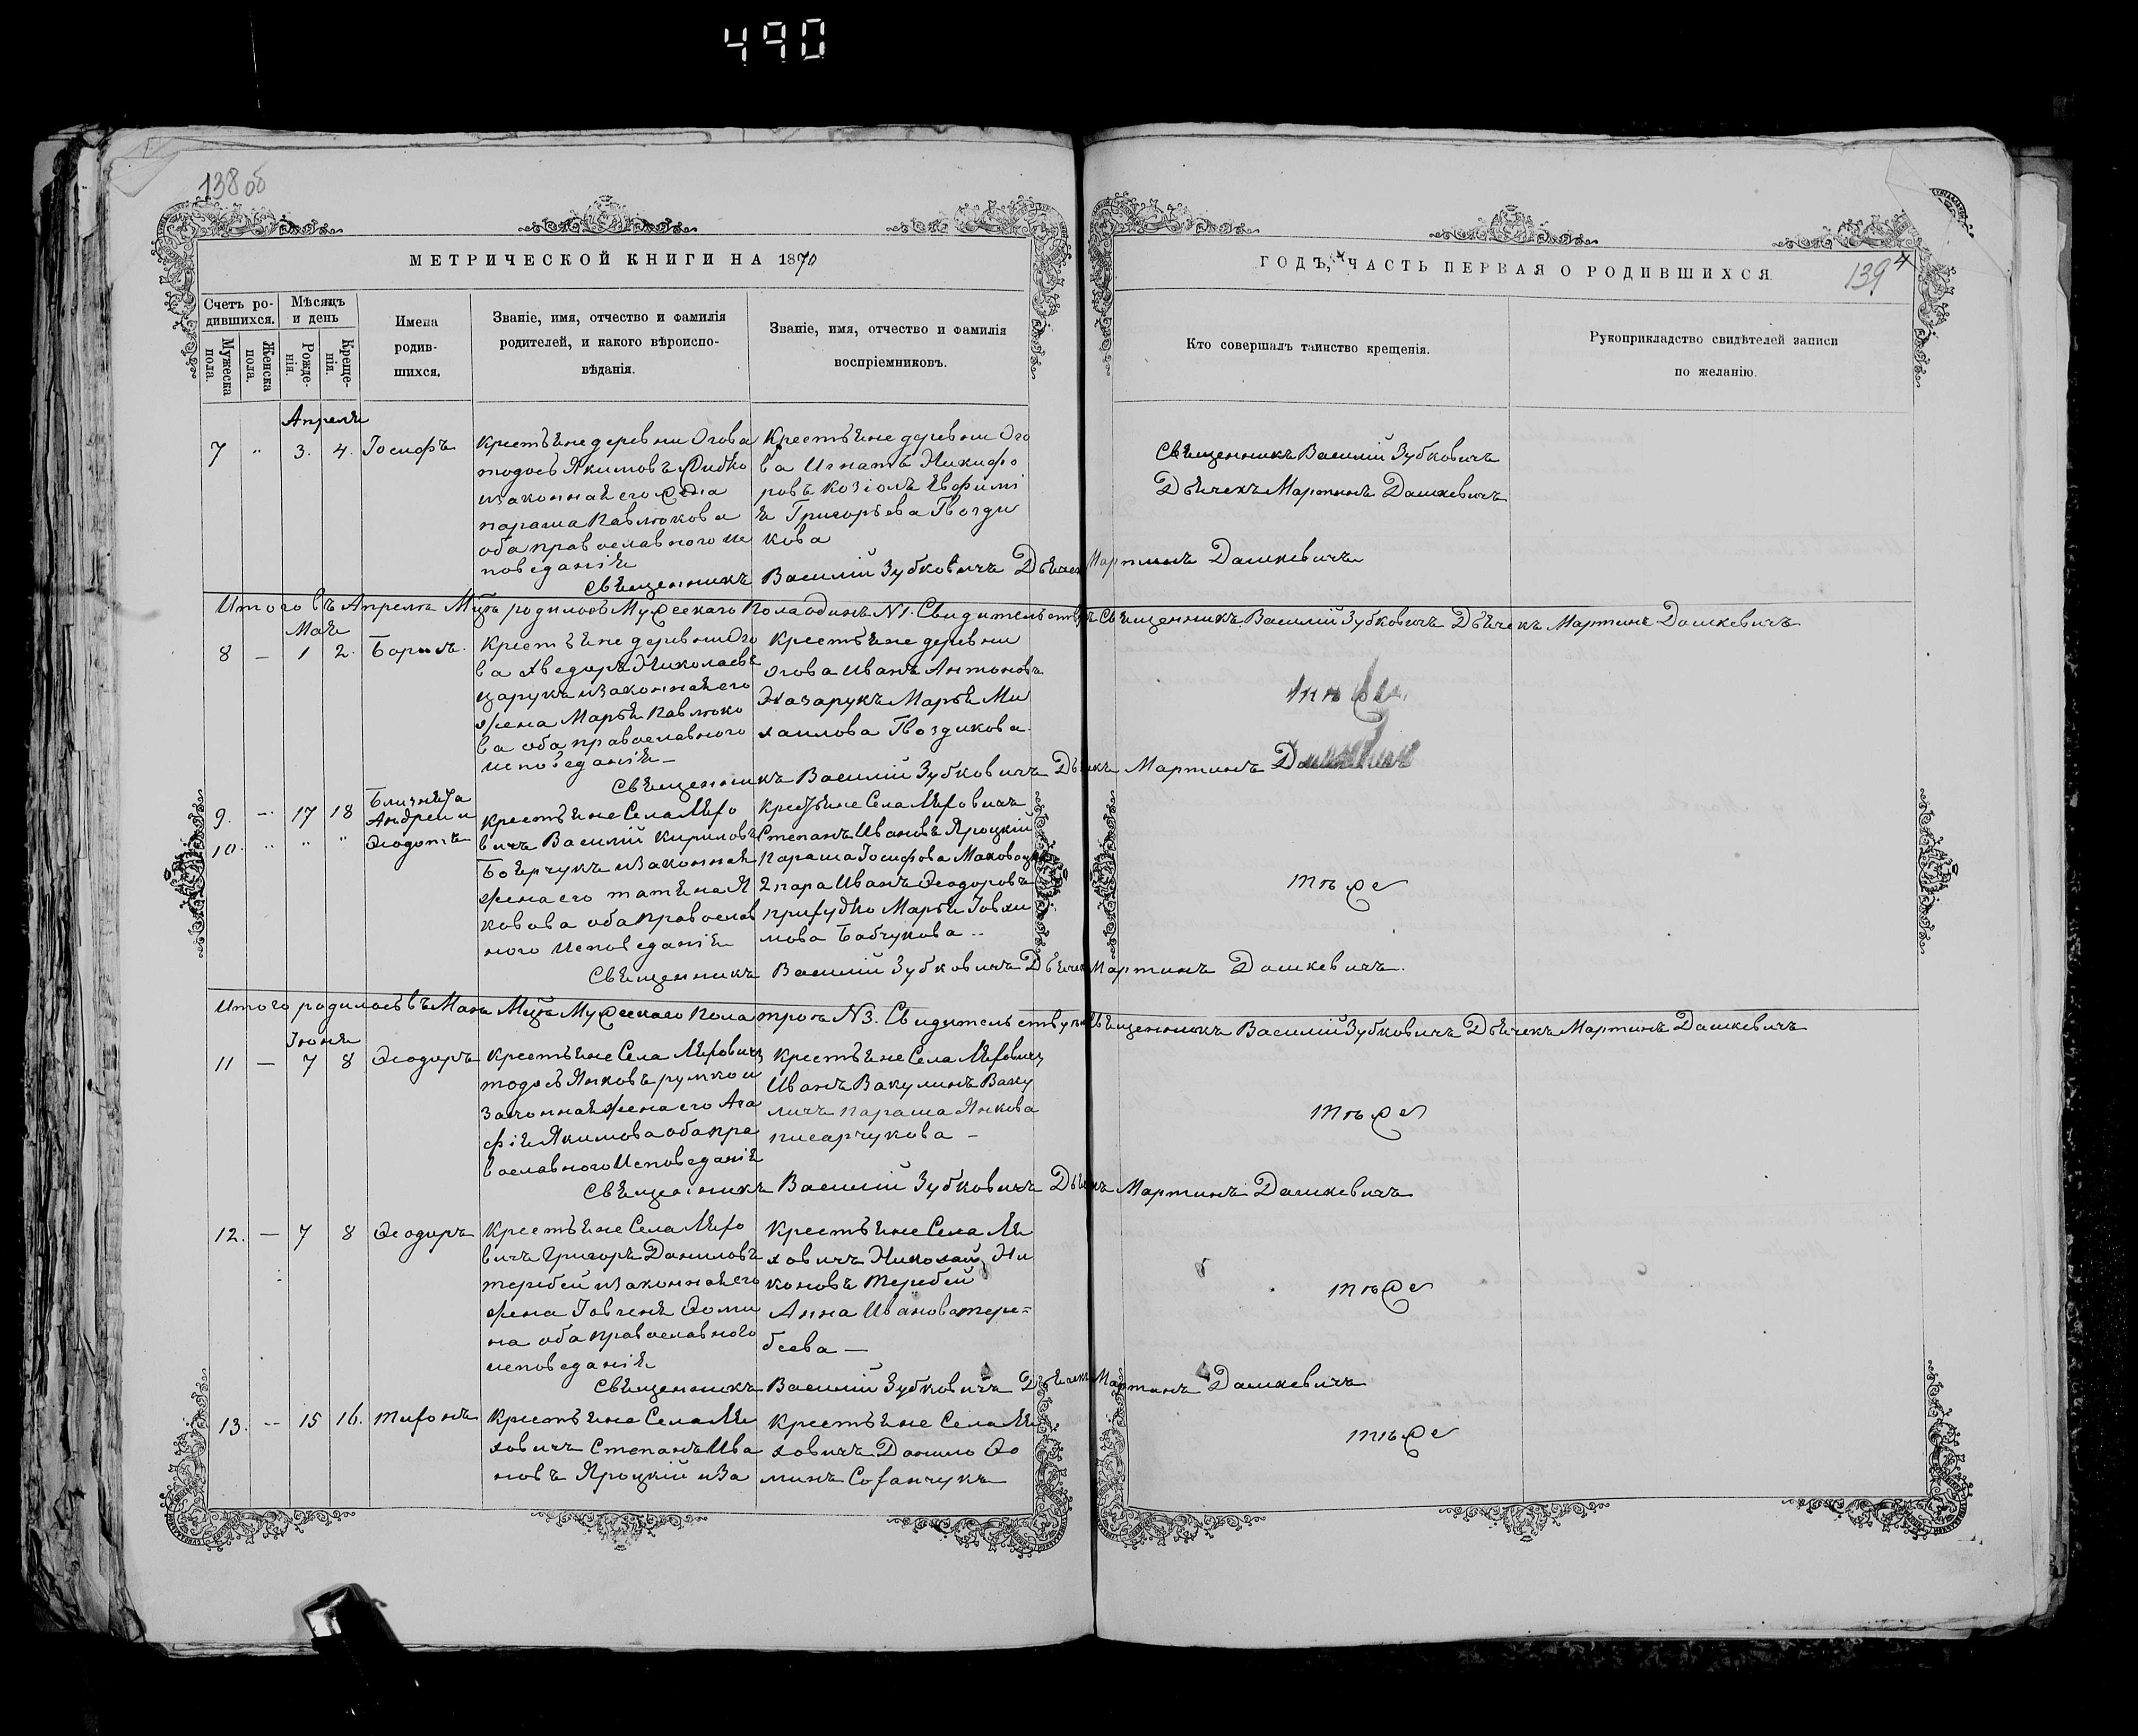 490
138 об
МЕТРИЧЕСКОЙ КНИГИ НА 1870
Счетъ ро-
дившихся.
Мужеска
пола.
Женска
пола.
Мѣсяцъ
и день
Рожде-
нія.
Креще-
нія.
Имена
родив-
шихся.
Званіе, имя, отчество и фамилія
родителей, и какого вѣроиспо-
вѣданія.
Званіе, имя, отчество и фамилія
воспріемниковъ.
ГОДЪ, ЧАСТЬ ПЕРВАЯ О РОДИВШИХСЯ.
139
4
Кто совершалъ таинство крещенія.
Рукоприкладство свидѣтелей записи
по желанію.
Апреля
7 " 3. 4. Іосифъ
Крестьяне деревни Огова
тодосъ Якимовъ
изаконная его жена
параша Павлюкова
оба православного ис
поведанія
Крестьяне деревни Ого
ва Игнатъ Никифо
ровъ Козіолъ Евфимі
я Григорьева Гвозди
кова
Священникъ Василій Зубковичъ
Дьячекъ Мартинъ Дашкевичъ
Священникъ Василій Зубковичъ Дьячекъ Мартинъ Дашкевичъ
Итого въ Апреле Мцѣ родилось Мужескаго Пола одинъ N1. Свидительствуютъ Священникъ Василій Зубковичъ Дьячекъ Мартинъ Дашкевичъ
Мая
8 — 1 2. Борисъ.
Крестьяне деревни Ого
ва Хведоръ Николаевъ
царукъ изаконная его
жена Марья Павлюко
ва оба православного
исповеданія —
Крестьяне деревни
Огова Иванъ Антоновъ
Назарукъ Марья Ми
хаилова Гвоздикова.
Священникъ Василій Зубковичъ Дьячекъ Мартинъ Дашкевичъ
9. — 17 18 Близнята
Андрей и
10 " " " Ѳеодотъ
Крестьяне Села Мехо
вичъ Василій Кириловъ
жена его татяна Я
ковова оба православ
ного Исповеданія
Крестьяне Села Меховичъ
Степанъ Ивановъ Яроцкій
Параша Іосифова
2 пара Иванъ Ѳеодоровъ
Марья Іовхи
мова Бабчукова ..
тоже
Священникъ Василій Зубковичъ Дьячекъ Мартинъ Дашкевичъ.
Итого родилось въ Мае Мцѣ Мужескаго Пола трое N3. Свидительствуютъ Священникъ Василій Зубковичъ Дьячекъ Мартинъ Дашкевичъ
Іюня
11 — 7 8 Ѳеодоръ
Крестьяне Села Меховичъ
тодосъ Янковъ румко и
Законная жена его Ага
фія Якимова оба пра
вославного Исповеданія
Крестьяне Села Меховичъ
Иванъ Вакулинъ Ваку
личъ параша Янкова
писарчукова —
тоже
Священникъ Василій Зубковичъ Дьячекъ Мартинъ Дашкевичъ
12. — 7 8 Ѳеодоръ
Крестьяне Села Мехо
вичъ Григоръ Даниловъ
теребей изаконная его
жена Іовгеня Ѳоми
на оба православного
исповеданія
Крестьяне Села Ме
ховичъ Николай Ни
коновъ Теребей
Анна Иванова тере=
беева —
тоже
Священникъ Василій Зубковичъ Дьячекъ Мартинъ Дашкевичъ
13. -- 15 16. тихонъ
Крестьяне Села Ме
ховичъ Степанъ Ива
новъ Яроцкій иза
Крестьяне Села Ме
ховичъ Данило Ѳо
минъ Соханчукъ
тоже